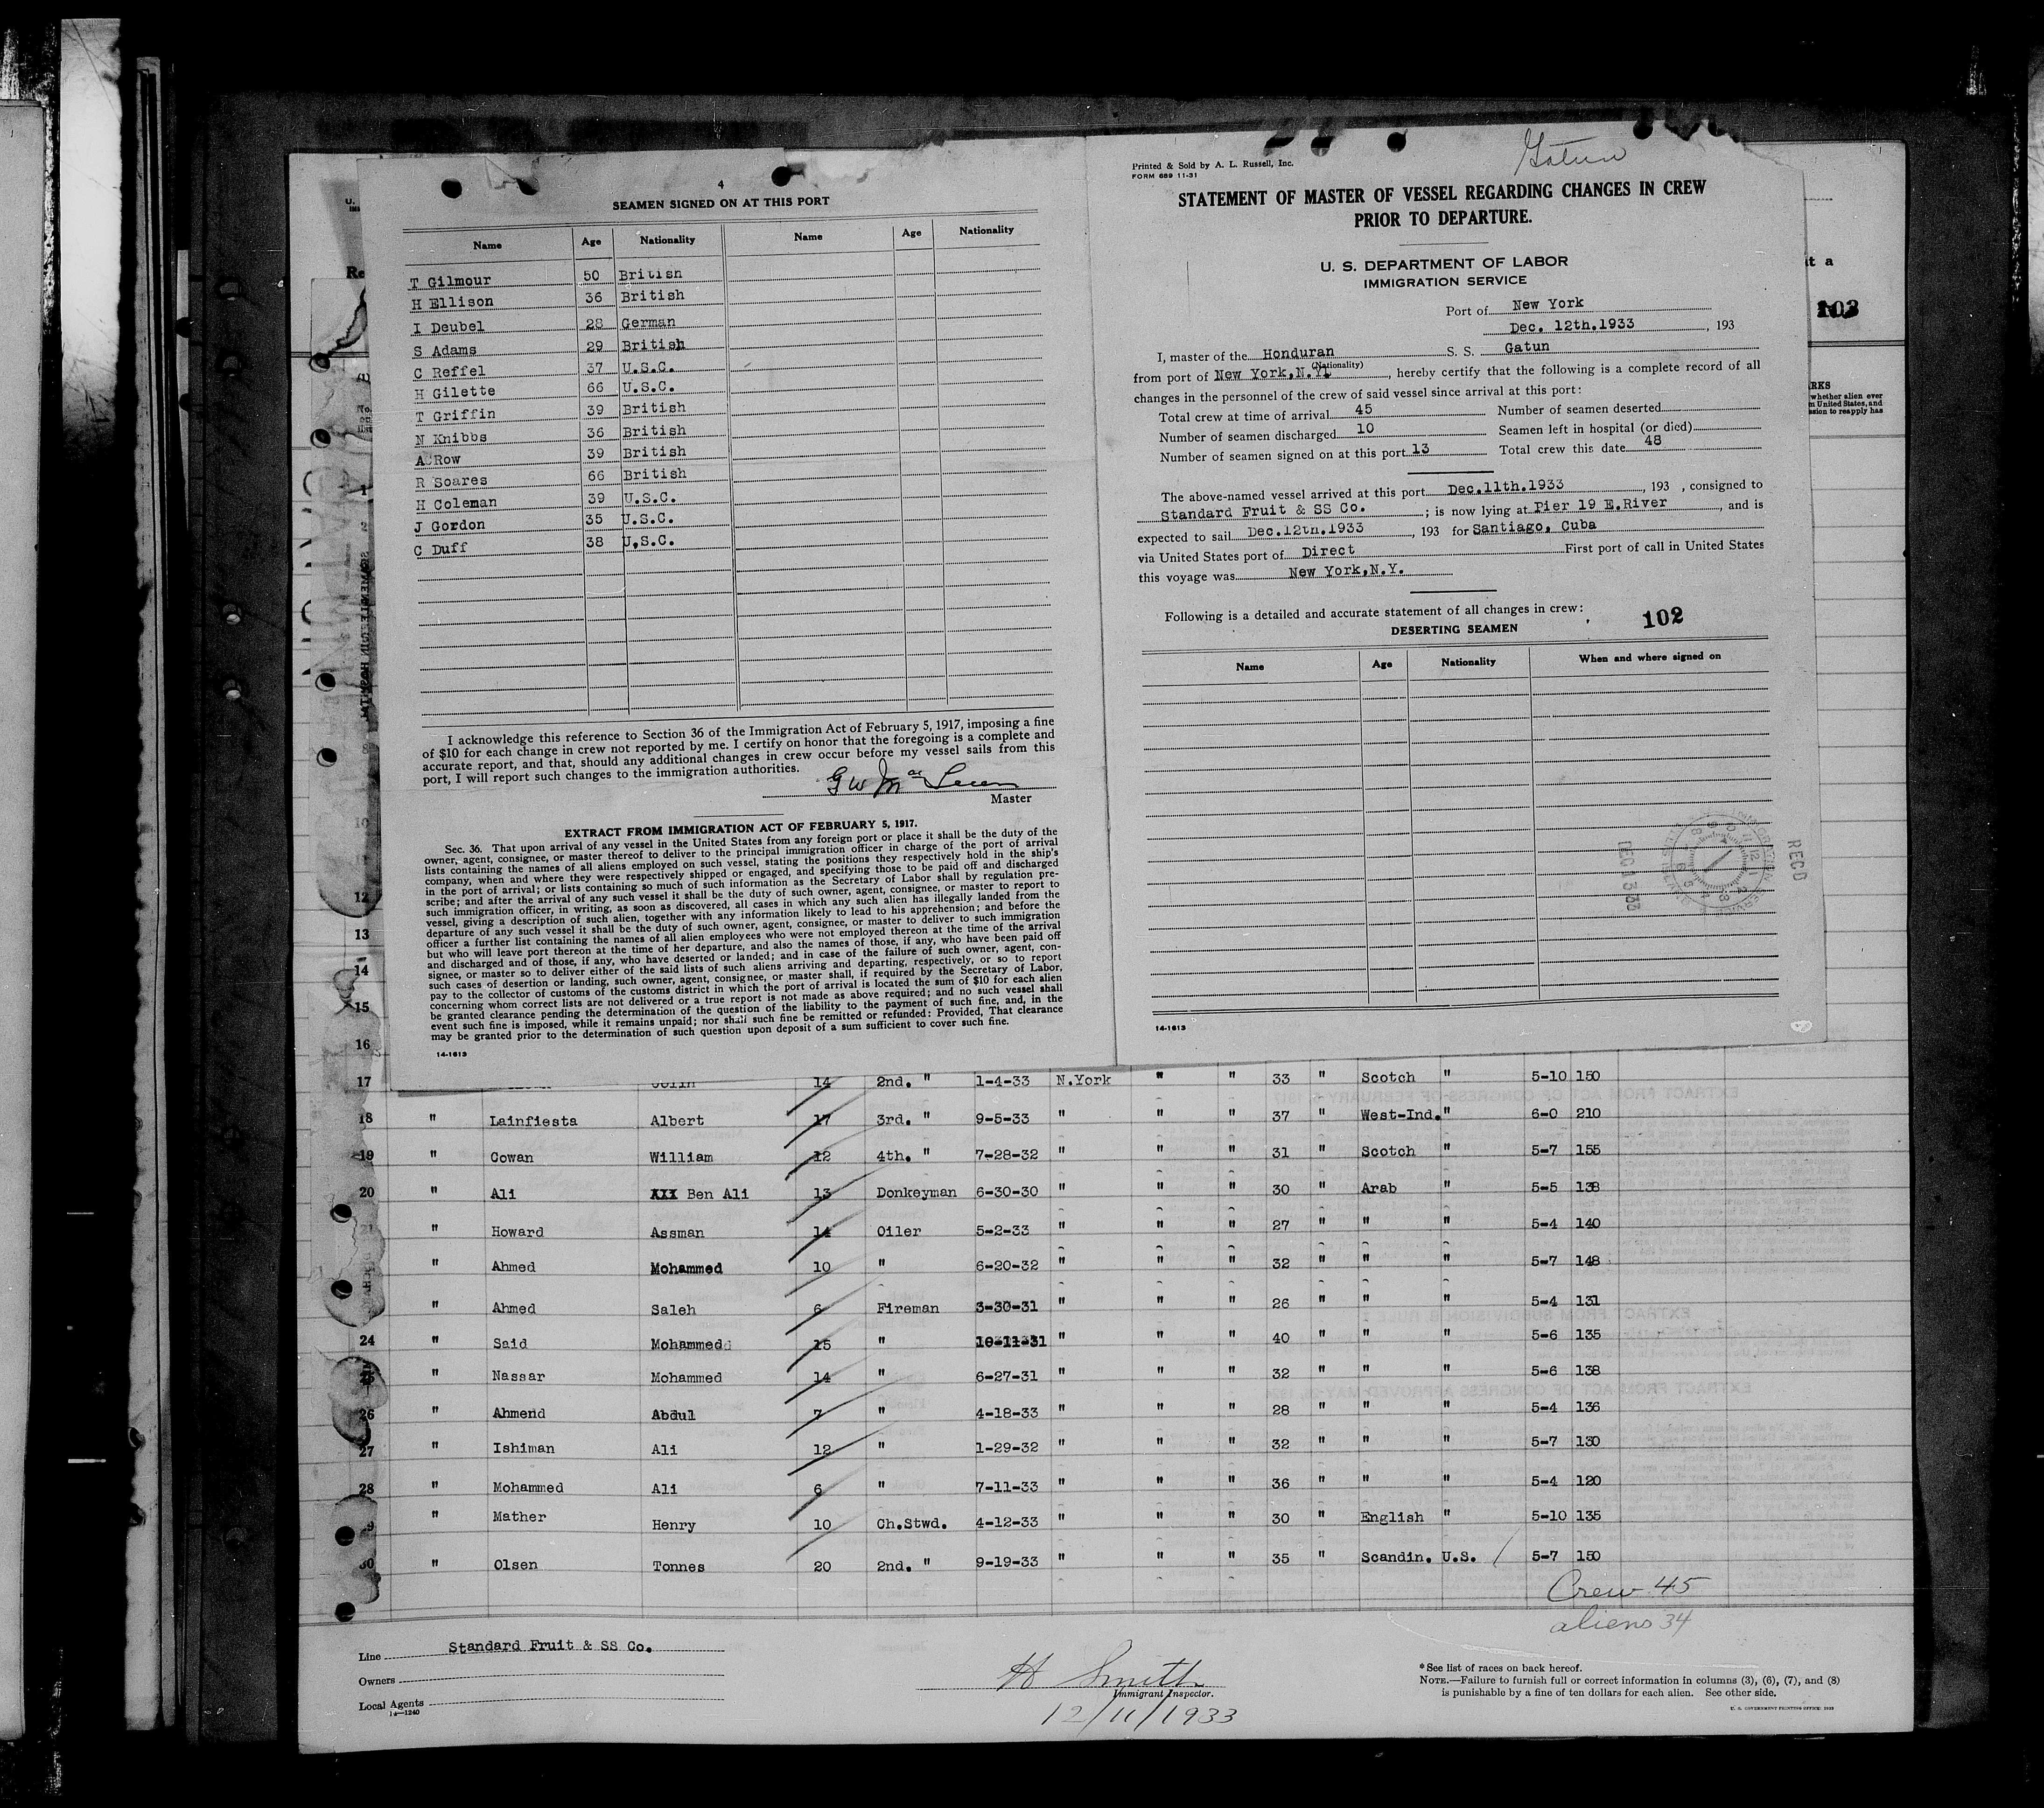 4
SEAMEN SIGNED ON AT THIS PORT
Name Age Nationality Name Age Nationality
T Gilmour 50 British
H Ellison 36 British
I Deubel 28 German
S Adams 29 British
C Reffel 37 U.S.C.
H Gilette 66 U.S.C.
T Griffin 39 British
N Knibbs 36 British
A Row 39 British
R Soares 66 British
H Coleman 39 U.S.C.
J Gordon 35 U.S.C.
C Duff 38 U.S.C.
I acknowledge this reference to Section 36 of the Immigration Act of February 5, 1917, imposing a fine
of $10 for each change in crew not reported by me. I certify on honor that the foregoing is a complete and
accurate report, and that, should any additional changes in crew occur before my vessel sails from this
port, I will report such changes to the immigration authorities.
G W
Master
EXTRACT FROM IMMIGRATION ACT OF FEBRUARY 5, 1917.
Sec. 36. That upon arrival of any vessel in the United States from any foreign port or place it shall be the duty of the
owner, agent, consignee, or master thereof to deliver to the principal immigration officer in charge of the port of arrival
lists containing the names of all aliens employed on such vessel, stating the positions they respectively hold in the ship's
company, when and where they were respectively shipped or engaged, and specifying those to be paid off and discharged
in the port of arrival; or lists containing so much of such information as the Secretary of Labor shall by regulation pre-
scribe; and after the arrival of any such vessel it shall be the duty of such owner, agent, consignee, or master to report to
such immigration officer, in writing, as soon as discovered, all cases in which any such alien has illegally landed from the
vessel, giving a description of such alien, together with any information likely to lead to his apprehension; and before the
departure of any such vessel it shall be the duty of such owner, agent, consignee, or master to deliver to such immigration
officer a further list containing the names of all alien employees who were not employed thereon at the time of the arrival
but who will leave port thereon at the time of her departure, and also the names of those, if any, who have been paid off
and discharged and of those, if any, who have deserted or landed; and in case of the failure of such owner, agent, con-
signee, or master so to deliver either of the said lists of such aliens arriving and departing, respectively, or so to report
such cases of desertion or landing, such owner, agent, consignee, or master shall, if required by the Secretary of Labor,
pay to the collector of customs of the customs district in which the port of arrival is located the sum of $10 for each alien
concerning whom correct lists are not delivered or a true report is not made as above required; and no such vessel shall
be granted clearance pending the determination of the question of the liability to the payment of such fine, and, in the
event such fine is imposed, while it remains unpaid; nor shall such fine be remitted or refunded: Provided, That clearance
may be granted prior to the determination of such question upon deposit of a sum sufficient to cover such fine.
14-1613
Gatun
Printed & Sold by A. L. Russell, Inc.
FORM 689 11-31
STATEMENT OF MASTER OF VESSEL REGARDING CHANGES IN CREW
PRIOR TO DEPARTURE.
U. S. DEPARTMENT OF LABOR
IMMIGRATION SERVICE
Port of New York
Dec. 12th.1933, 193
I, master of the Honduran S. S. Gatun
(Nationality)
from port of New York,N.Y., hereby certify that the following is a complete record of all
changes in the personnel of the crew of said vessel since arrival at this port:
Total crew at time of arrival 45 Number of seamen deserted
Number of seamen discharged 10 Seamen left in hospital (or died)
Number of seamen signed on at this port 13 Total crew this date 48
The above-named vessel arrived at this port Dec.11th.1933, 193 , consigned to
Standard Fruit & SS Co. ; is now lying at Pier 19 E.River , and is
expected to sail Dec.12th.1933, 193 for Santiago, Cuba
via United States port of Direct First port of call in United States
this voyage was New York,N.Y.
Following is a detailed and accurate statement of all changes in crew:
102
DESERTING SEAMEN
Name Age Nationality When and where signed on
REC'D
DEC 13 33
14-1613
it a
103
RKS
whether alien ever
m United States, and
ssion to reapply has
10
12
13
14
15
16
17 John 14 2nd. " 1-4-33 N.York " " 33 " Scotch " 5-10 150
18 " Lainfiesta Albert 17 3rd. " 9-5-33 " " " 37 " West-Ind. " 6-0 210
19 " Cowan William 12 4th. " 7-28-32 " " " 31 " Scotch " 5-7 155
20 " Ali XXX Ben Ali 13 Donkeyman 6-30-30 " " " 30 " Arab " 5-5 138
21 " Howard Assman 14 Oiler 5-2-33 " " " 27 " " " 5-4 140
" Ahmed Mohammed 10 " 6-20-32 " " " 32 " " " 5-7 148
" Ahmed Saleh 6 Fireman 3-30-31 " " " 26 " " " 5-4 131
24 " Said Mohammed 15 " 10-11-31 " " " 40 " " " 5-6 135
25 " Nassar Mohammed 14 " 6-27-31 " " " 32 " " " 5-6 138
26 " Ahmend Abdul 7 " 4-18-33 " " " 28 " " " 5-4 136
27 " Ishiman Ali 12 " 1-29-32 " " " 32 " " " 5-7 130
28 " Mohammed Ali 6 " 7-11-33 " " " 36 " " " 5-4 120
29 " Mather Henry 10 Ch.Stwd. 4-12-33 " " " 30 " English " 5-10 135
30 " Olsen Tonnes 20 2nd. " 9-19-33 " " " 35 " Scandin. U.S. / 5-7 150
Crew 45
aliens 34
Line Standard Fruit & SS Co.
Owners
Local Agents
14-1240
H Smith
Immigrant Inspector.
12/11/1933
* See list of races on back hereof.
NOTE.—Failure to furnish full or correct information in columns (3), (6), (7), and (8)
is punishable by a fine of ten dollars for each alien. See other side.
U. S. GOVERNMENT PRINTING OFFICE: 1932